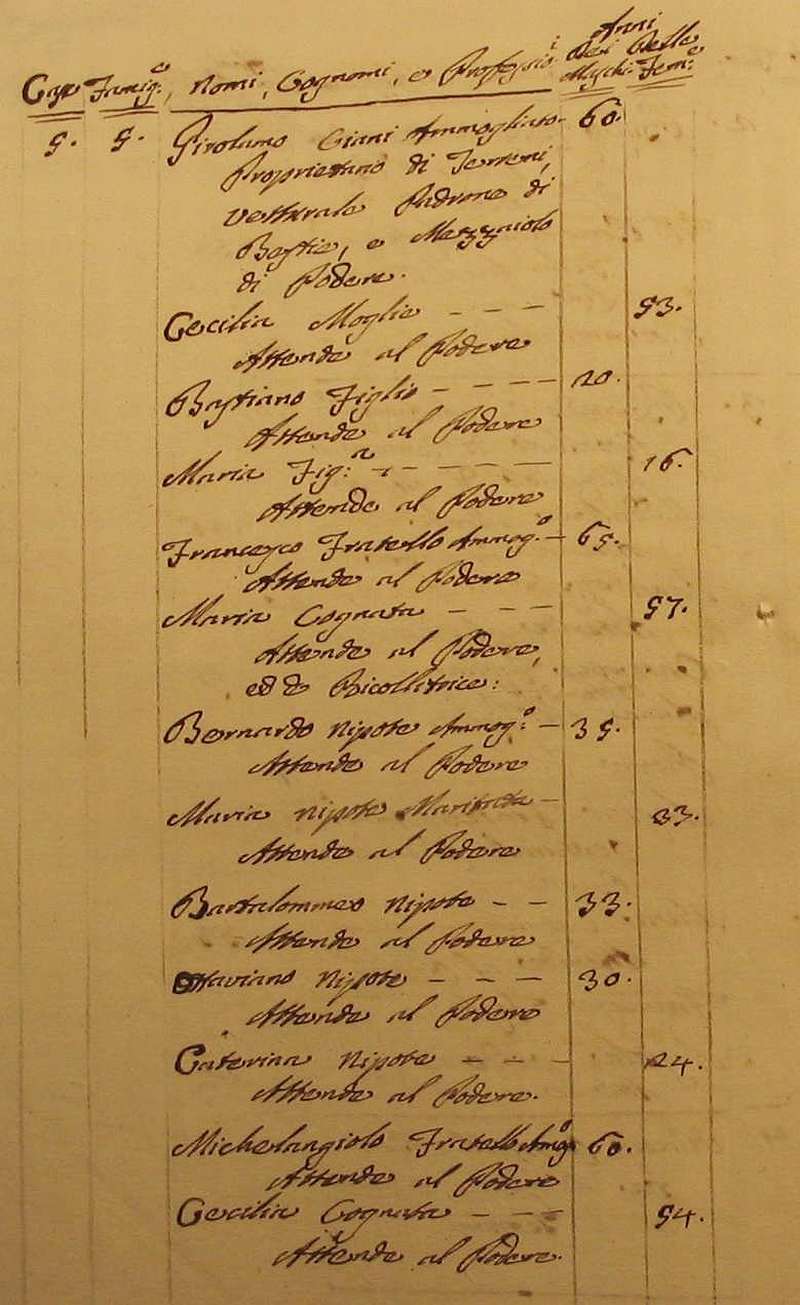 Anni
Case Famig.e, Nomi, Cognomi, e Professioi Dei Delle
Maschi. Fem.e
5. 5. Girolamo Ciani Ammogliato. 60.
Proprietario di Terreni,
Vetturale Padrone di
Bestie, e Mezzaiolo
di Podere.
Cecilia Moglie - - - 53.
Attende al Podere
Bastiano Figlio - - - - 20.
Attende al Podere
Maria Fig.a - - - - - 16.
Attende al Podere
Francesco Fratello Ammog.o - 65.
Attende al Podere
Maria Cognata - - - 57.
Attende al Podere,
ed è Ricollitrice:
Bernardo Nipote Ammog.o - 35.
Attende al Podere
Maria Nipote Maritata - 33.
Attende al Podere
Bartolommeo Nipote - - 33.
Attende al Podere
Ottaviano Nipote - - - 30.
Attende al Podere
Caterina Nipote - - - 24.
Attende al Podere.
Michelangiolo Fratello Amog.o 60.
Attende al Podere
Cecilia Cognata - - - 54.
Attende al Podere.